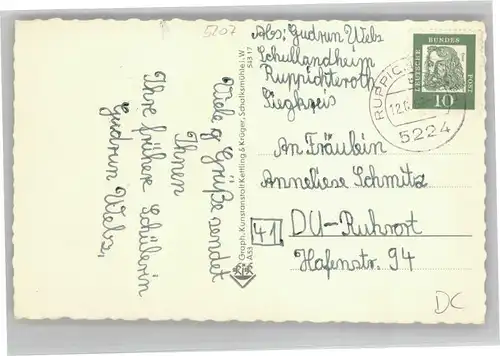 5207
Abs; Gudrun Webs
Schullandheim
Ruppichteroth
Siegkreis
Viele Grüße sendet
Ihnen
Ihre frühere Schülerin
Gudrun Webs,
Graph. Kunstanstalt Kettling & Krüger, Schalksmühle i. W.
Sß3 17
An Fräulein
Anneliese Schmitz
41 DU-Ruhrort
Hafenstr. 94
DEUTSCHE BUNDES POST
10
12.6
5224
DC